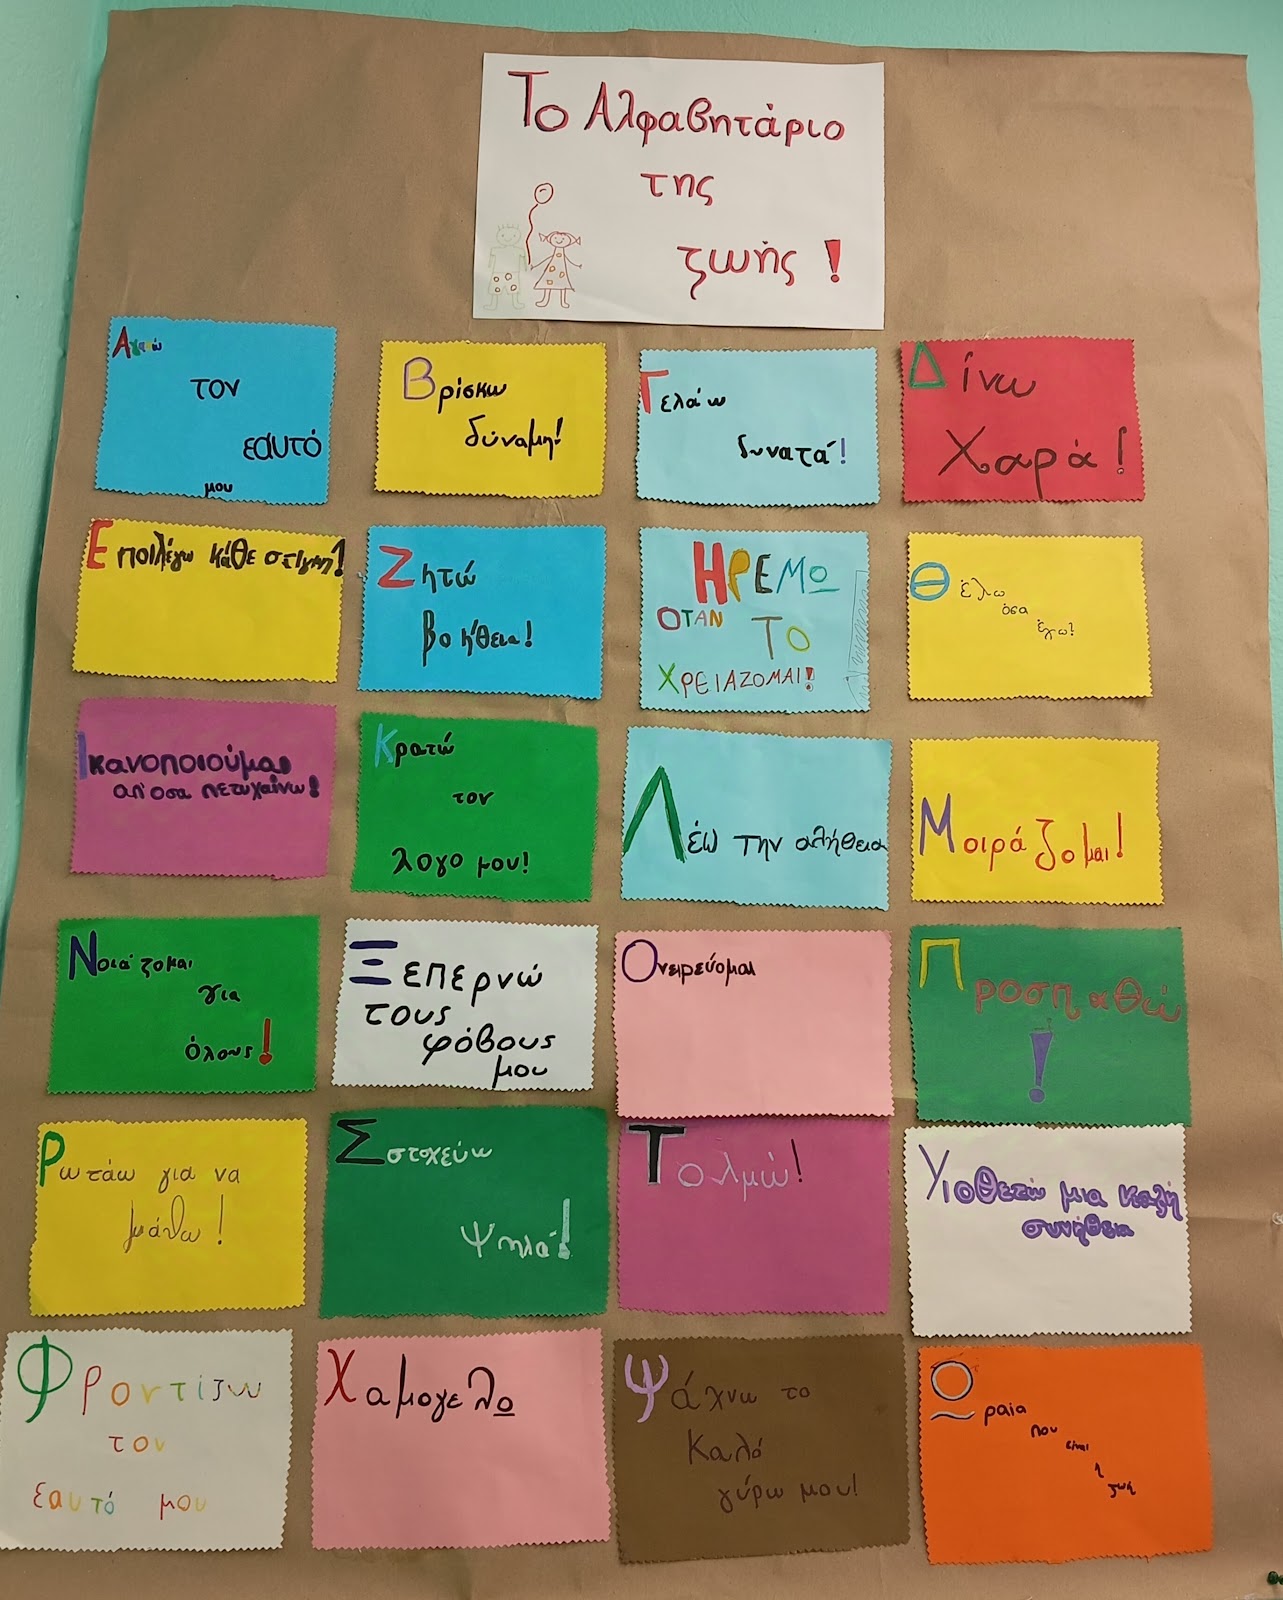 Το Αλφαβητάριο
της
ζωής!
Αγαπώ
τον
εαυτό
μου
Βρίσκω
δύναμη!
Γελάω
δυνατά!
Δίνω
Χαρά!
Επιλέγω κάθε στιγμή!
Ζητώ
βοήθεια!
ΗΡΕΜΩ
ΟΤΑΝ ΤΟ
ΧΡΕΙΑΖΟΜΑΙ!!
Θέλω
όσα
έχω!
Ικανοποιούμαι
απ'όσα πετυχαίνω!
Κρατώ
τον
λογο μου!
Λέω την αλήθεια
Μοιράζομαι!
Νοιάζομαι
για
όλους!
Ξεπερνώ
τους
φόβους
μου
Ονειρεύομαι
Προσπαθώ
!
Ρωτάω για να
μάθω!
Σστοχεύω
ψηλά!
Τολμώ!
Υιοθετώ μια καλή
συνήθεια
Φροντίζω
τον
εαυτό μου
Χαμογελο
Ψάχνω το
Καλό
γύρω μου!
Ωραία
που
είναι
η
ζωή